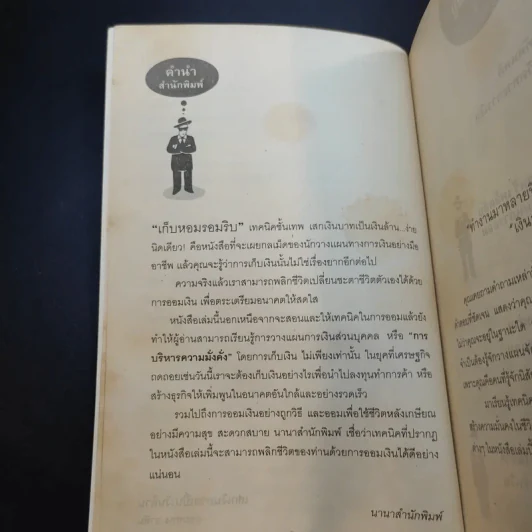 คำนำ
สำนักพิมพ์
"เก็บหอมรอมริบ" เทคนิคชั้นเทพ เสกเงินบาทเป็นเงินล้าน...ง่าย
นิดเดียว! คือหนังสือที่จะเผยกลเม็ดของนักวางแผนทางการเงินอย่างมือ
อาชีพ แล้วคุณจะรู้ว่าการเก็บเงินนั้นไม่ใช่เรื่องยากอีกต่อไป
ความจริงแล้วเราสามารถพลิกชีวิตเปลี่ยนชะตาชีวิตตัวเองได้ด้วย
การออมเงิน เพื่อตระเตรียมอนาคตให้สดใส
หนังสือเล่มนี้นอกเหนือจากจะสอนและให้เทคนิคในการออมแล้วยัง
ทำให้ผู้อ่านสามารถเรียนรู้การวางแผนการเงินส่วนบุคคล หรือ "การ
บริหารความมั่งคั่ง" โดยการเก็บเงิน ไม่เพียงเท่านั้น ในยุคที่เศรษฐกิจ
ถดถอยเช่นวันนี้เราจะต้องเก็บเงินอย่างไรเพื่อนำไปลงทุนทำการค้า หรือ
สร้างธุรกิจให้เพิ่มพูนในอนาคตอันใกล้และอย่างรวดเร็ว
รวมไปถึงการออมเงินอย่างถูกวิธี และออมเพื่อใช้ชีวิตหลังเกษียณ
อย่างมีความสุข สะดวกสบาย นานาสำนักพิมพ์ เชื่อว่าเทคนิคที่ปรากฏ
ในหนังสือเล่มนี้จะสามารถพลิกชีวิตของท่านด้วยการออมเงินได้ดีอย่าง
แน่นอน
นานาสำนักพิมพ์
"ทำงานมาหลายปี
"เงิน
คุณเคยถามคำถามเหล่า
คำตอบที่ชัดเจน แสดงว่าคุณ
จำเป็นต้องรู้จักวางแผนจัด
เพราะคุณคือคนที่รู้จักนิสัย
มาเรียนรู้เทคนิค
สร้างความมั่นคงในชีวิต
ต่างๆ ในหนังสือเล่มนี้จะ